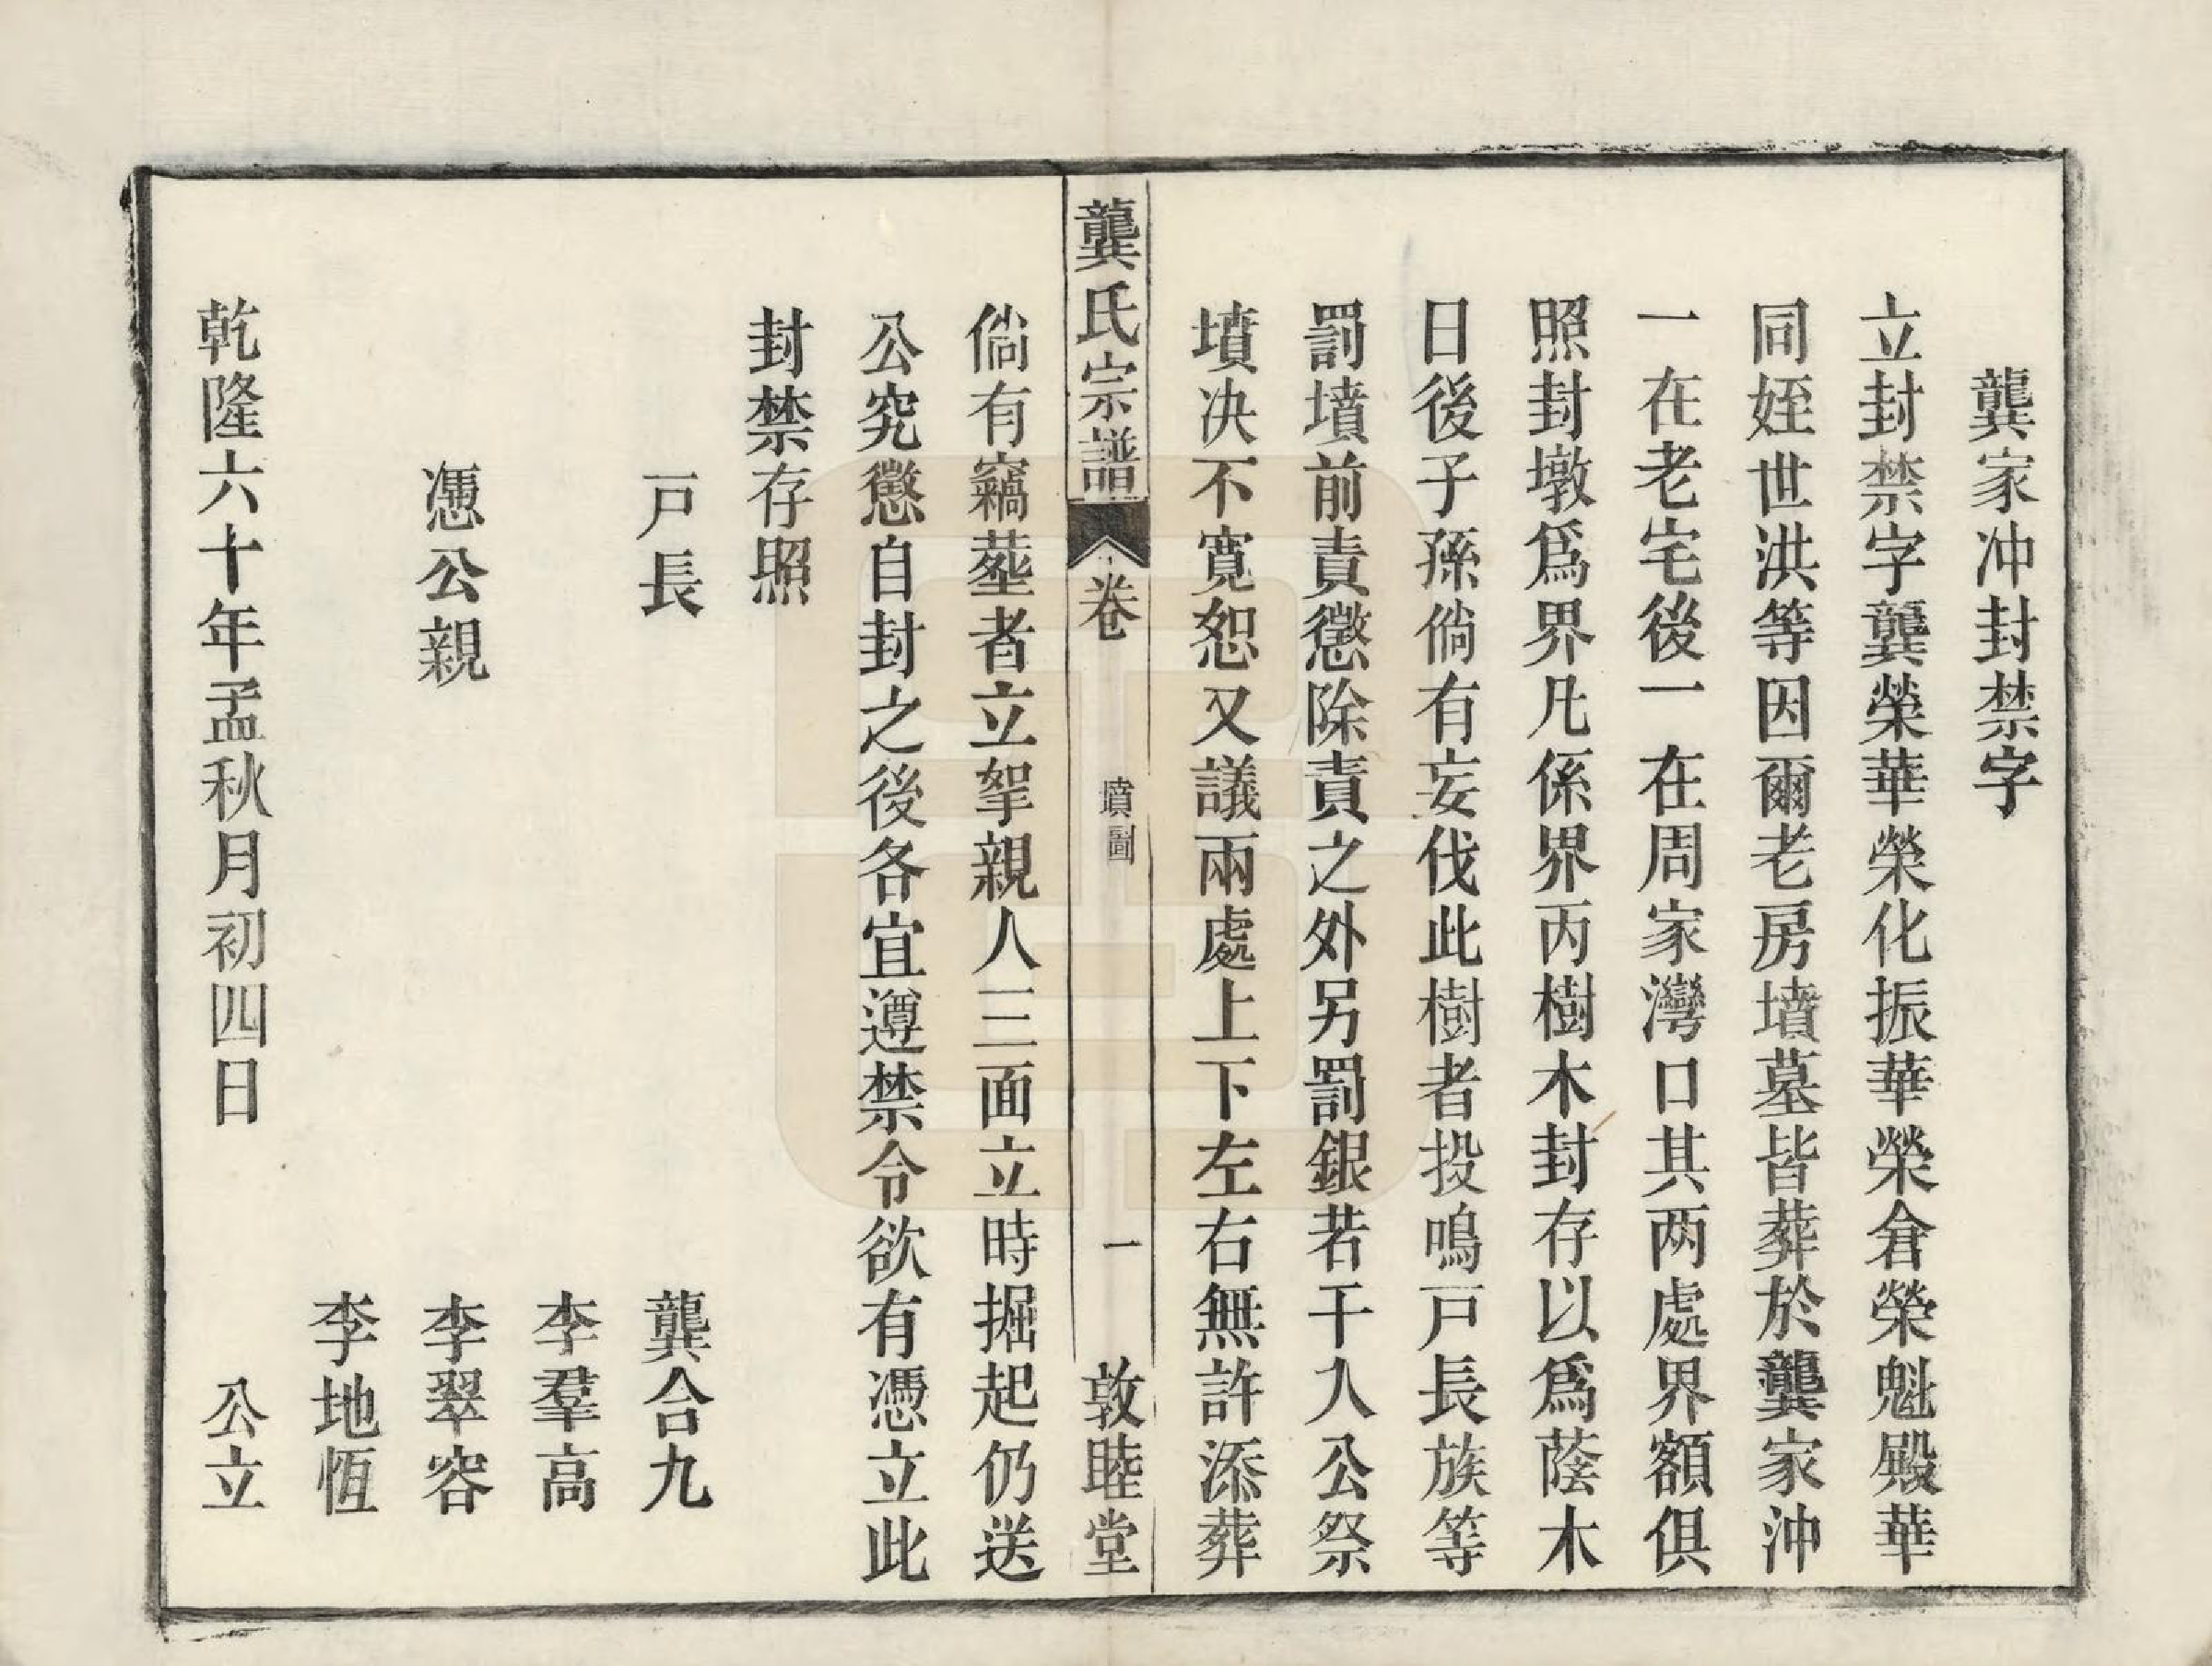 龔家冲封禁字
立封禁字龔榮華榮化振華榮倉榮魁殿華
同姪世洪等因爾老房墳墓皆葬於龔家沖
一在老宅後一在周家灣口其两處界額俱
照封墩爲界凡係界丙樹木封存以爲蔭木
日後子孫倘有妄伐此樹者投鳴戸長族等
罰墳前責懲除責之外另罰銀若干入公祭
墳决不寬恕又議兩處上下左右無許添葬
龔氏宗譜
卷
墳圖
一
敦睦堂
倘有竊塟者立拏親人三面立時掘起仍送
公究懲自封之後各宜遵禁令欲有憑立此
封禁存照
戸長 龔合九
李羣高
憑公親 李翠容
李地恆
乾隆六十年孟秋月初四日 公立